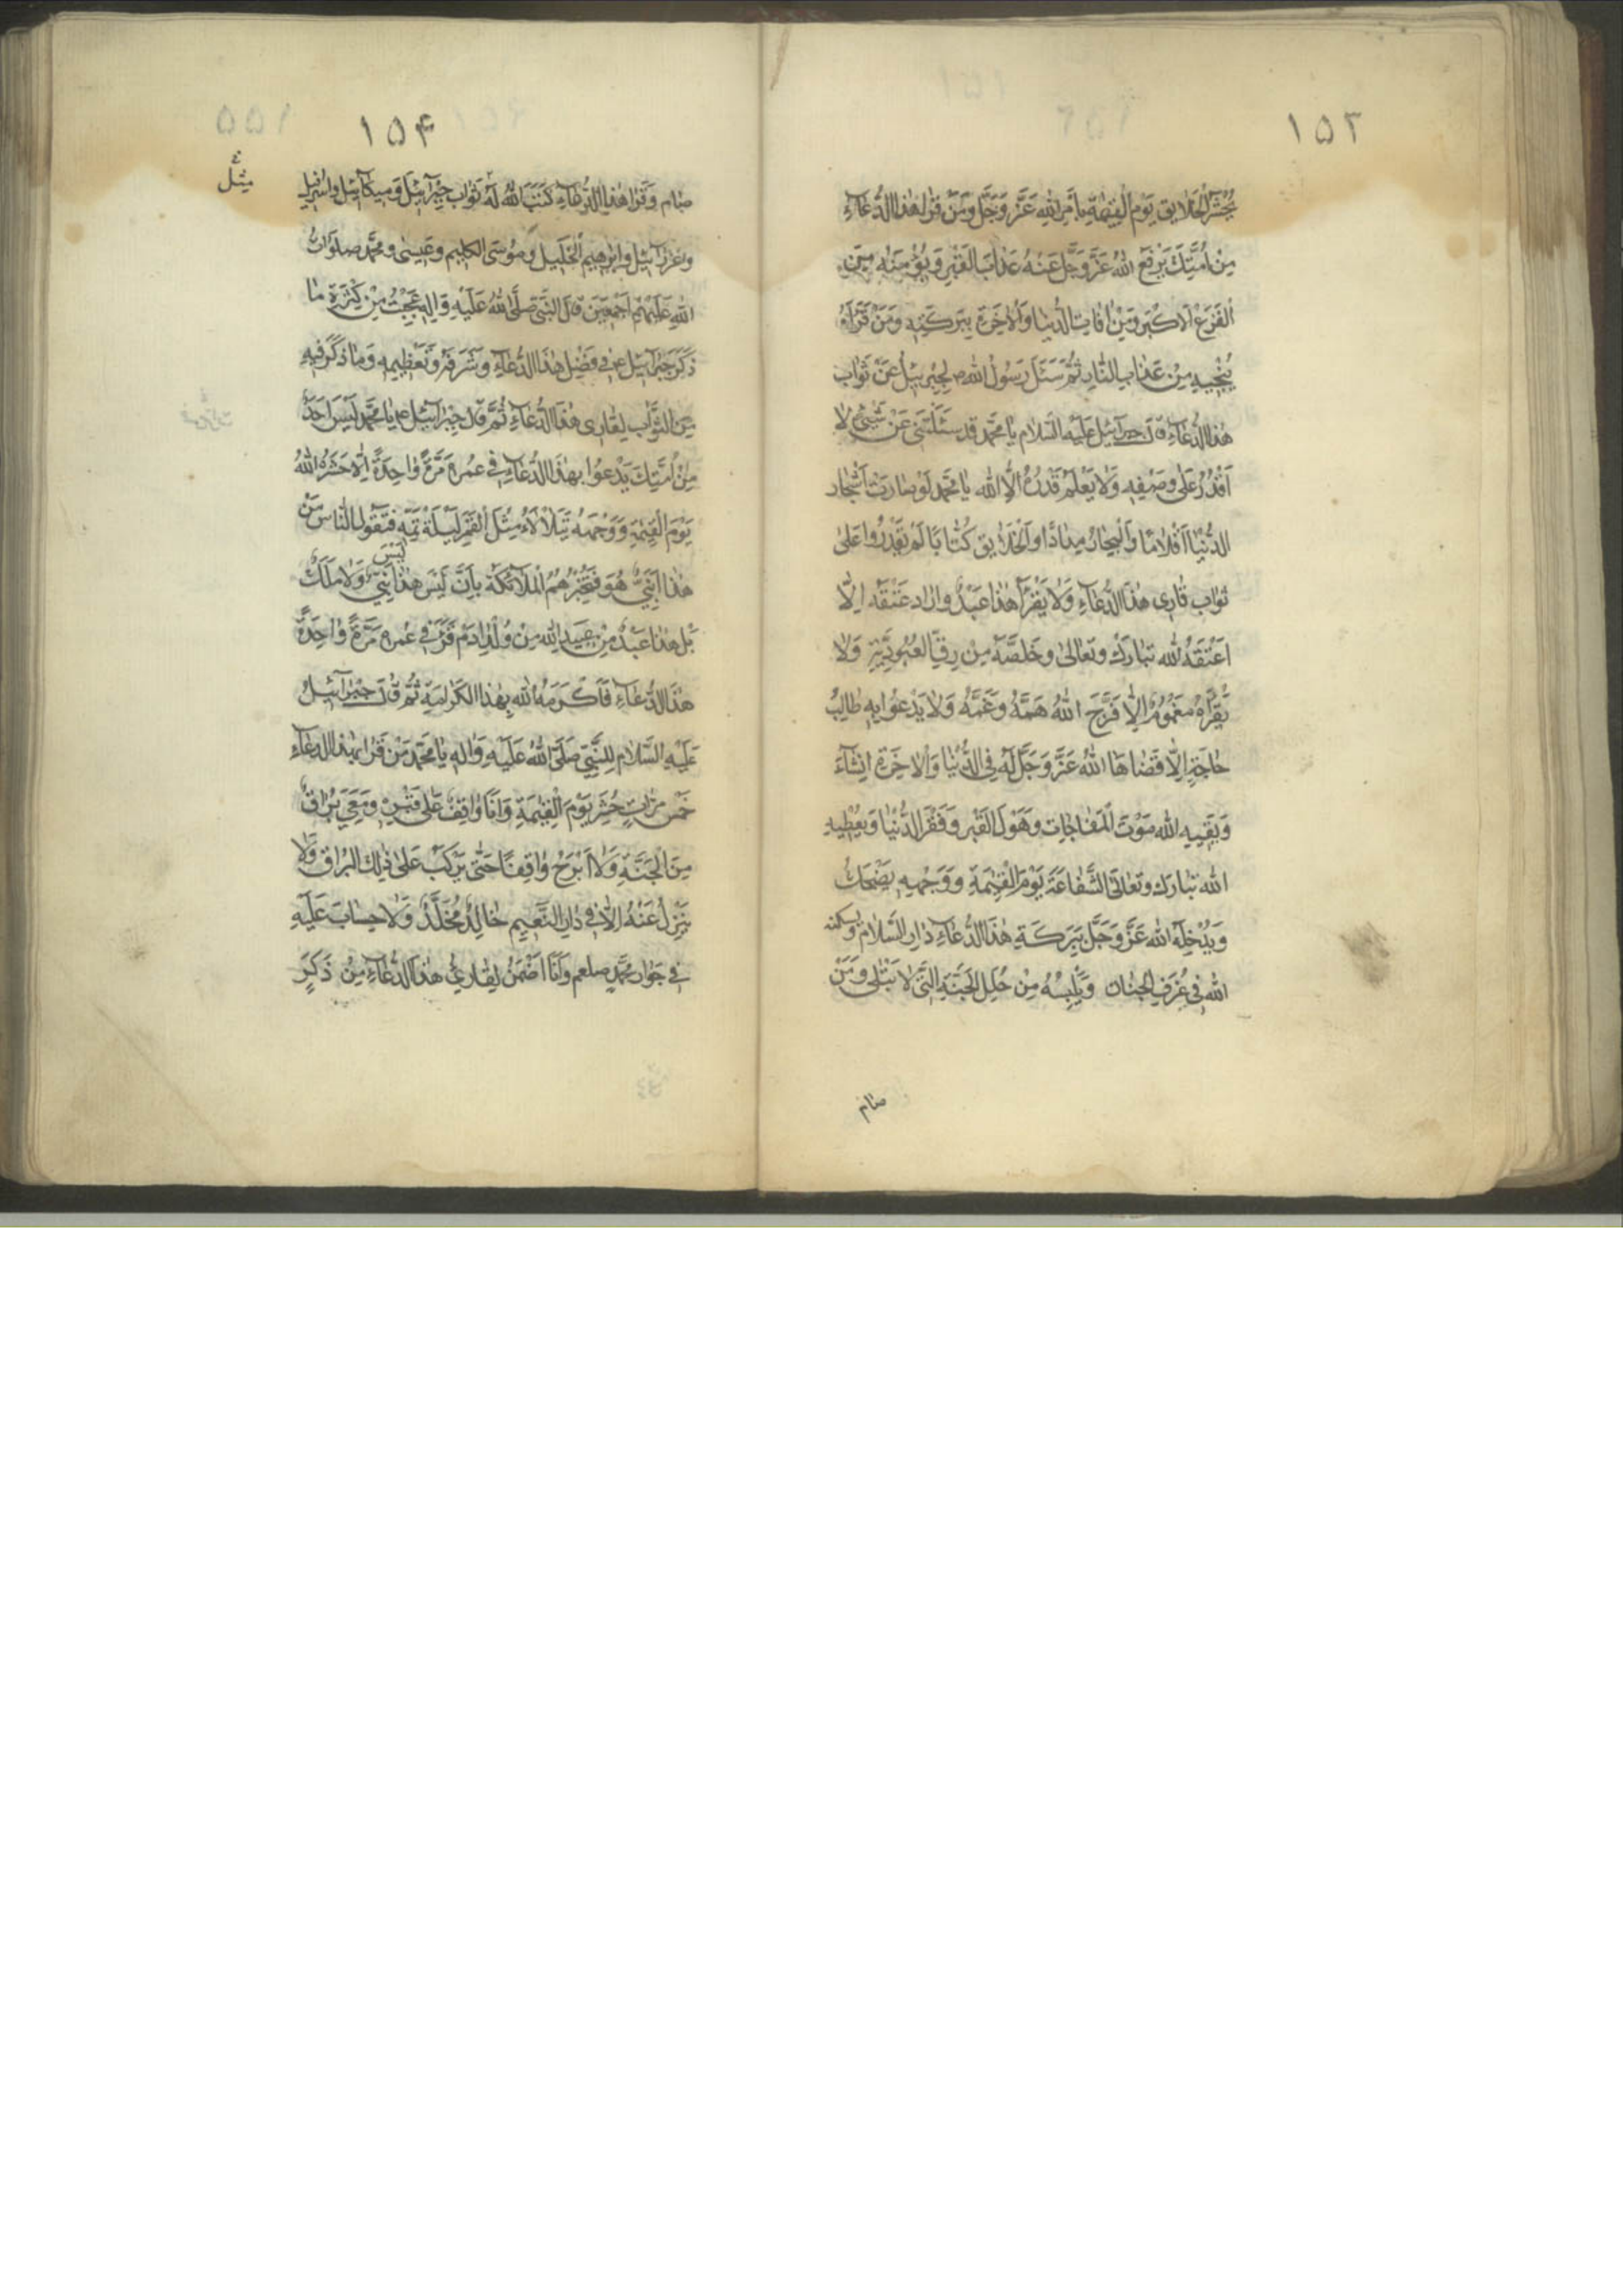 ۱۵۳
يُحْشَرُ الْخَلَايِق يَوْمَ الْقِيٰمَةِ بِاَمْرِ اللّٰهِ عَزَّ وَجَلَّ وَمَنْ قَرَاَ هٰذَا الدُّعَاۤءَ
مِنْ اُمَّتِكَ يَرْفَعُ اللّٰهُ عَزَّ وَجَلَّ عَنْهُ عَذَابَ الْقَبْرِ وَيُؤْمِنَهُ مِنَ
الْفَزَعِ الْاَكْبَرِ وَمِنْ اٰفَاتِ الدُّنْيَا وَالْاٰخِرَةِ بِبَرَكَتِهِ وَمَنْ قَرَاَهُ
يُنْجِيهِ مِنْ عَذَابِ النَّارِ ثُمَّ سَئَلَ رَسُولُ اللّٰهِ ص لِجِبْرَئيلَ عَنْ ثَوَابِ
هٰذَا الدُّعَاۤءِ قَالَ جبرآئيل عَلَيْهِ السَّلَام يَا مُحَمَّد قَدْ سَئَلْتَنِي عَنْ شَيْئٍ لَا
اَقْدُرُ عَلٰى وَصْفِهِ وَلَا يَعْلَمُ قَدْرَهُ اِلَّا اللّٰه يَا مُحَمَّد لَوْ صَارَت اَشْجَار
الدُّنْيَا اَقْلَامًا وَالْبِحَارُ مِدَادًا وَالْخَلَايِق كُتَّابًا لَمْ يَقْدِرُوا عَلٰى
ثَوَابِ قَارِي هٰذَا الدُّعَاۤءِ وَلَا يَقْرَاُ هٰذَا عَبْدٌ وَاَرَادَ عَتْقَهُ اِلَّا
اَعْتَقَهُ اللّٰه تَبَارَكَ وَتَعَالٰى وَخَلَّصَهُ مِنْ رِقِّ الْعُبُودِيَّةِ وَلَا
يَقْرَاهُ مَغْمُومٌ اِلَّا فَرَّجَ اللّٰهُ هَمَّهُ وَغَمَّهُ وَلَا يَدْعُوا بِهِ طَالِبُ
حَاجَةٍ اِلَّا قَضَاهَا اللّٰهُ عَزَّ وَجَلَّ لَهُ فِي الدُّنْيَا وَالْاٰخِرَةِ اِنْشَاۤءَ
وَيَقِيهِ اللّٰه مَوْتَ الْمُفَاجَاتِ وَهَوْلَ الْقَبْرِ وَفَقْرَ الدُّنْيَا وَيُعْطِيهِ
اللّٰه تَبَارَكَ وَتَعَالَى الشَّفَاعَةَ يَوْمَ الْقِيٰمَةِ وَوَجْهِهِ يَضْحَكُ
وَيُدْخِلُهُ اللّٰه عَزَّ وَجَلَّ بِبَرَكَةِ هٰذَا الدُّعَاۤءِ دَارَ السَّلَامِ وَيسكنه
اللّٰه فِي غُرَفِ الْجِنَان وَيُلْبِسُهُ مِنْ حُلَلِ الْجَنَّةِ الَّتِي لَا تَبْلٰى وَمَنْ
صام
۱۵۴
صَامَ وَقَرَاَ هٰذَا الدُّعَاۤءَ كَتَبَ اللّٰهُ لَهُ ثَوَابَ جِبْرَآئِيلَ وَمِيكَآئِيلَ وَاِسْرَافِيلَ
وَعَزْرَآئِيل وَاِبْرٰهِيم الْخَلِيل وَمُوسَى الْكَلِيم وَعِيسٰى وَمُحَمَّد صَلَوَاتُ
اللّٰهِ عَلَيْهِمْ اَجْمَعِينَ قَالَ النَّبِيّ صَلَّى اللّٰهُ عَلَيْهِ وَاٰلِهِ عَجِبْتُ مِنْ كَثْرَةِ مَا
ذَكَرَ جَبْرَآئِيل ع فِي فَضْلِ هٰذَا الدُّعَاۤءِ وَشَرَفِهِ وَتَعْظِيمِهِ وَمَا ذَكَرَ فِيهِ
مِنَ الثَّوَابِ لِقَارِي هٰذَا الدُّعَاۤءِ ثُمَّ قَالَ جِبْرَآئِيل ع يَا مُحَمَّد لَيْسَ اَحَدٌ
مِنْ اُمَّتِكَ يَدْعُوا بِهٰذَا الدُّعَاۤءِ فِي عُمْرِهِ مَرَّةً وَاحِدَةً اِلَّا حَشَرَهُ اللّٰهُ
يَوْمَ الْقِيٰمَةِ وَوَجْهُهُ يَتَلَأْلَاُ مِثْلَ الْقَمَرِ لَيْلَةَ تَمِّهِ فَتَقُول النَّاس مَنْ
هٰذَا اَنَبِيٌّ هُوَ فَتُخْبِرُهُمُ الْمَلَآئِكَة بِاَنْ لَيْسَ هٰذَا نَبِيٌّ وَلَا مَلَكٌ
بَلْ هٰذَا عَبْدٌ مِنْ عَبِيدِ اللّٰهِ مِنْ وُلْدِ اٰدَم قَرَاَ فِي عُمْرِهِ مَرَّةً وَاحِدَةً
هٰذَا الدُّعَاۤءَ فَاَكْرَمَهُ اللّٰه بِهٰذَا الْكَرَامَةِ ثُمَّ قَالَ جَبْرَآئِيلُ
عَلَيْهِ السَّلَام لِلنَّبِيِّ صَلَّى اللّٰهُ عَلَيْهِ وَاٰلِهِ يَا مُحَمَّد مَنْ قَرَاَ هٰذَا الدُّعَاۤءَ
خَمْسَ مَرَّاتٍ حُشِرَ يَوْمَ الْقِيٰمَةِ وَاَنَا وَاقِفٌ عَلٰى قَبْرِهِ وَمَعِي بُرَاقٌ
مِنَ الْجَنَّةِ وَلَا اَبْرَحُ وَاقِفًا حَتّٰى يَرْكَبَ عَلٰى ذٰلِكَ الْبُرَاقِ وَلَا
يَنْزِلُ عَنْهُ اِلَّا فِي دَارِ النَّعِيمِ خَالِدٌ مُخَلَّدٌ وَلَا حِسَابَ عَلَيْهِ
فِي جَوَارِ مُحَمَّدٍ صلعم وَاَنَا اَضْمَنُ لِقَارِي هٰذَا الدُّعَاۤءِ مِنْ ذَكَرٍ